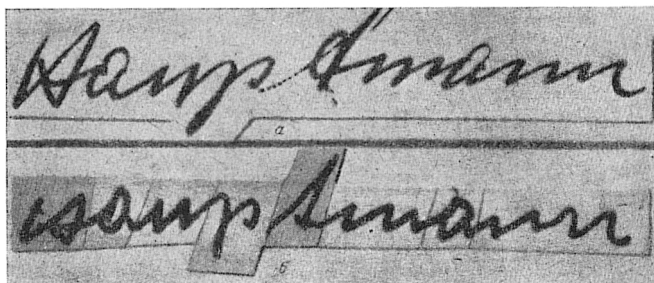 Hauptmann
а
Hauptmann
б